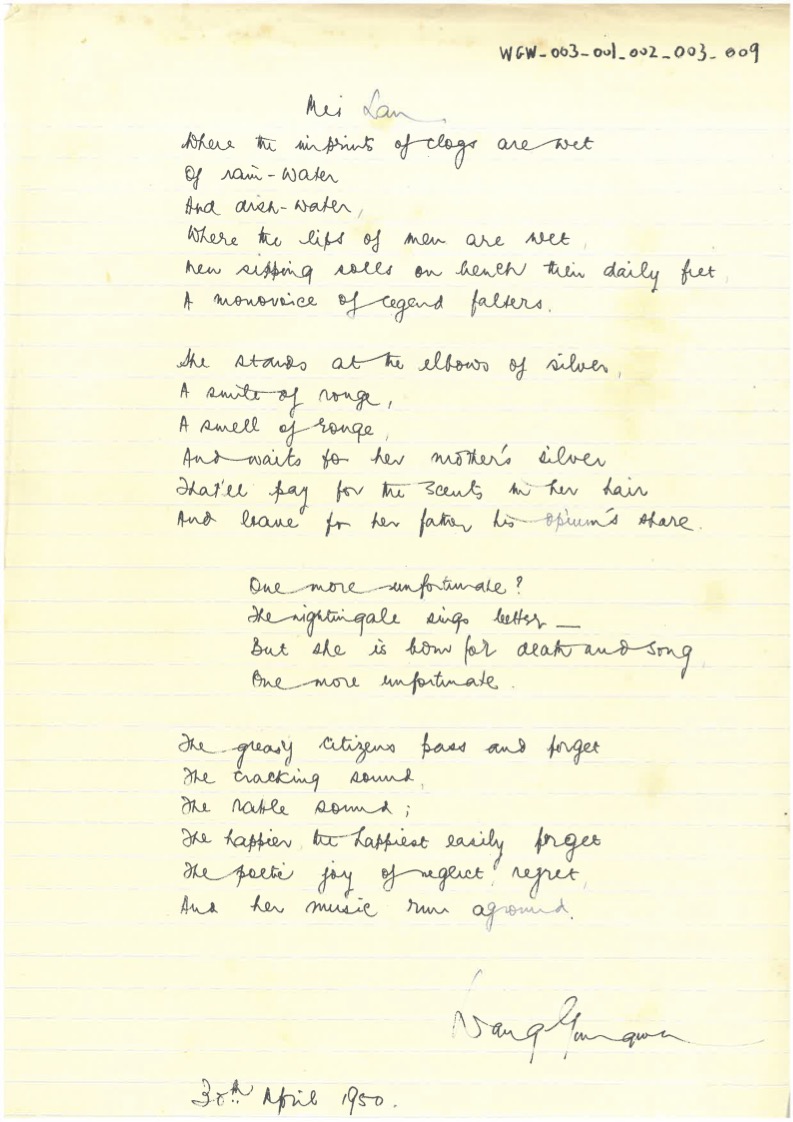 WGW-003-001-002-003-009
Mei Lan
Where the imprints of clogs are wet
Of rain-water
And dish-water,
Where the lips of men are wet,
Men sipping on bench their daily fret
A monovoice of legend falters.
She stands at the elbows of silver,
A smile of rouge,
A smell of rouge,
And waits for her mother's silver
That'll pay for the scents in her hair
And leave for her father his opium's share.
One more unfortunate?
The nightingale sings better —
But she is born for death and song
One more unfortunate.
The greasy citizens pass and forget
The cracking sound,
The sound;
The happier, the happiest easily forget
The poetic joy of neglect, regret,
And her music run aground.
Wang Gungwu
30th April 1950.